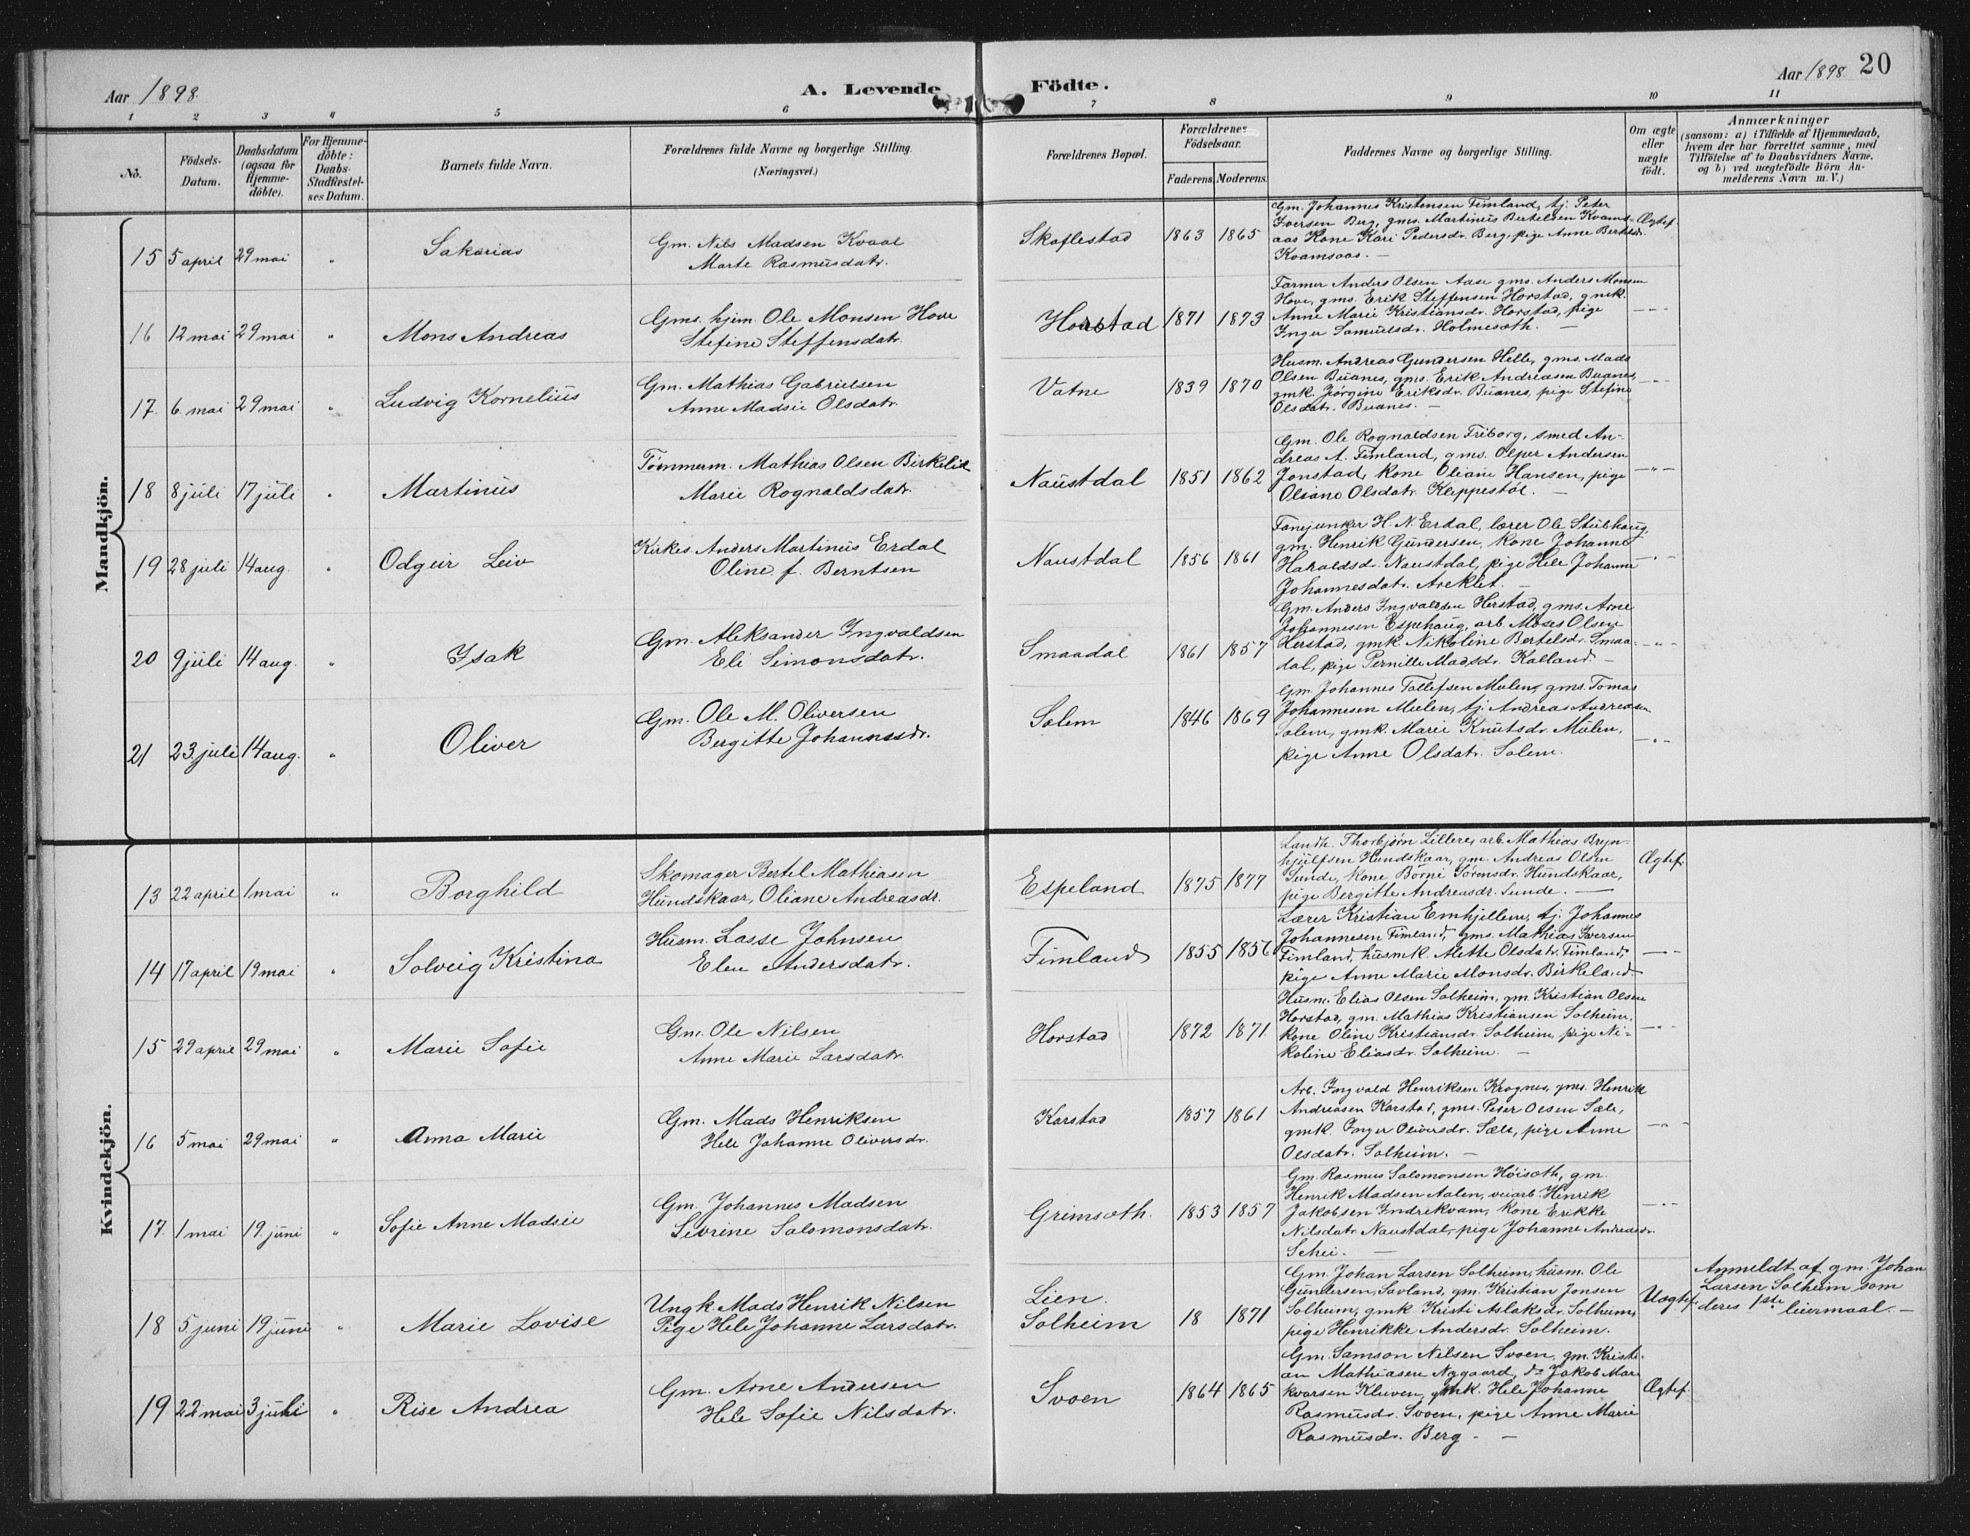 Aar 1898.
A. Levende Födte.
Aar 1898. 20
1 2 3 4 5 6 7 8 9 10 11
No.
Födsels-Datum.
Daabsdatum (ogsaa for Hjemme-döbte).
For Hjemme-döbte: Daabs-Stadfæstel-ses Datum.
Barnets fulde Navn.
Forældrenes fulde Navne og borgerlige Stilling.
(Næringsvei.)
Forældrenes Bopæl.
Forældrenes Födselsaar.
Faderens. Moderens.
Faddernes Navne og borgerlige Stilling.
Om ægte eller uægte födt.
Anmærkninger
(saasom: a) i Tilfælde af Hjemmedaab, hvem der har forrettet samme, med Tilföielse af to Daabsvidners Navne, og b) ved uægtefödte Börn An-melderens Navn m. V.)
Mandkjön.
15 5 april 29 mai " Sakarias
Gm. Nils Madsen Kvaal
Marte Rasmusdatr.
Skaflestad 1863 1865
Gm. Johannes Kristensen Fimland, tj. Peter
Iversen Berg, gms. Martinus Bertelsen Kvams-
aas Kone Kari Pedersdr. Berg, pige Anne Bertelsdr.
Kvamsaas. —
Ægtef.
16 12 mai 29 mai " Mons Andreas
Gms. hjem. Ole Monsen Hove
Stefine Steffensdatr.
Horstad 1871 1873
Farmer Anders Olsen Aase gms. Anders Monsen
Hove, gms. Erik Steffensen Horstad, gmk.
Anne Marie Kristiansdr. Horstad, pige
Inger Samuelsdr. Holmesæth. —
— " —
17. 6. mai 29 mai " Ludvig Kornelius
Gm. Mathias Gabrielsen
Anne Madsie Olsdatr.
Vatne 1839 1870
Husm. Andreas Gundersen Helle, gms. Mads
Olsen Buanes, gms. Erik Andreasen Buanes,
gmk. Jørgine Eriksdr. Buanes, pige Stefine
Olsdatr. Buanes. —
— " —
18 8 juli 17 juli " Martinus
Tømmerm. Mathias Olsen Birkelid
Marie Rognaldsdatr.
Naustdal 1851 1862
Gm. Ole Rognaldsen Friborg, smed An-
dreas A. Fimland, gms. Olper Andersen
Jonstad, kone Oliane Hansen, pige
Oliane Olsdatr. Kleppestøl. —
— " —
19 28 juli 14 aug. " Odgeir Leiv
Kirkes. Anders Martinus Erdal
Oline f. Berntsen
Naustdal 1856 1861
Fanejunker H. N. Erdal, lærer Ole Stubhaug,
gm. Henrik Gundersen, kone Johanne
Haraldsdr. Naustdal, pige Hele Johanne
Johannesdatr. Areklet. —
— " —
20 9 juli 14 aug. " Isak
Gm. Aleksander Ingvaldsen
Eli Simonsdatr.
Smaadal 1861 1857
Gm. Anders Ingvaldsen Herstad, gms. Arne
Johannesen Espehaug, arb. Moses Olsen
Herstad, gmk Nikoline Bertelsdr. Smaa-
dal, pige Pernille Madsdr. Kalland. —
— " —
21 23 juli 14 aug. " Oliver
Gm. Ole M. Oliversen
Bergitte Johannesdr.
Solem 1846 1869
Gm. Johannes Tollefsen Mulen, gms. Tomas
Johannesen Mulen, tj. Andreas Andreasen
Solem, gmk. Marie Knutsdr. Mulen,
pige Anne Olsdatr. Solem.
— " —
Kvindekjön.
13 22 april 1 mai " Borghild
Skomager Bertel Mathiasen
Hundskaar, Oliane Andreasdr.
Espeland 1875 1877
Landh. Thorbjørn Lillere, arb. Mathias Bryn-
hjulfsen Hundskaar, gm. Andreas Olsen
Sunde, kone Børni Sørensdr. Hundskaar,
pige Bergitte Andreasdr. Sunde. —
Ægtef.
14 17 april 19 mai " Solveig Kristina
Husm. Lasse Johnsen
Elen Andersdatr.
Fimland 1855 1856
Lærer Kristian Emhjellem, tj. Johannes
Johannesen Fimland, gms. Mathias Iversen
Fimland, husmk. Alette Olsdatr. Fimland,
pige Anne Marie Monsdr. Birkeland
— " —
15 29 april 29 mai " Marie Sofie
Gm. Ole Nilsen
Anne Marie Larsdatr.
Horstad 1872 1871
Husm. Elias Olsen Solheim, gm. Kristian Olsen
Horstad, gm. Mathias Kristiansen Solheim,
kone Oline Kristiansdr. Solheim, pige Ni-
koline Eliasdr. Solheim. —
— " —
16 5 mai 29 mai " Anna Marie
Gm. Mads Henriksen
Hele Johanne Oliversdr.
Karstad 1857 1861
Arb. Ingvald Henriksen Krognes, gms. Henrik
Andreasen Karstad, gms. Peter Olsen Sæle,
gmk. Inger Oliversdr. Sæle, pige Anne
Olsdatr. Solheim. —
— " —
17. 1 mai 19. juni " Sofie Anne Madsie
Gm. Johannes Madsen
Sevrine Salomonsdatr.
Grimsæth. 1853 1857
Gm. Rasmus Salomonsen Høisæth, gm.
Henrik Madsen Aalen, veiarb. Henrik
Jakobsen Indrekvam, kone Erikke
Nilsdatr. Naustdal, pige Johanne Andreasdr.
Schei. —
— " —
18 5 juni 19 juni " Marie Lovise
Ungk. Mads Henrik Nilsen
Pige Hele Johanne Larsdatr.
Lien.
Solheim 18 1871
Gm. Johan Larsen Solheim, husm. Ole
Gundersen, Savland, gm. Kristian Jonsen
Solheim, gmk Kristi Aslaksdr. Solheim,
pige Henrikke Andersdr. Solheim.
Uægtef.
Anmeldt af gm. Johan
Larsen Solheim som
deres 1ste leiermaal. —
19 22 mai 3 juli " Rise Andrea
Gm. Arne Andersen
Hele Sofie Nilsdatr.
Svoen 1864 1865
Gm. Samson Nilsen Svoen, gm. Kristi-
an Mathiasen Nygaard, do Jakob Mari
kvarsen Kleiven, gmk. Hele Johanne
Rasmusdr. Svoen, pige Anne Marie
Rasmusdr. Berg. —
Ægtef.